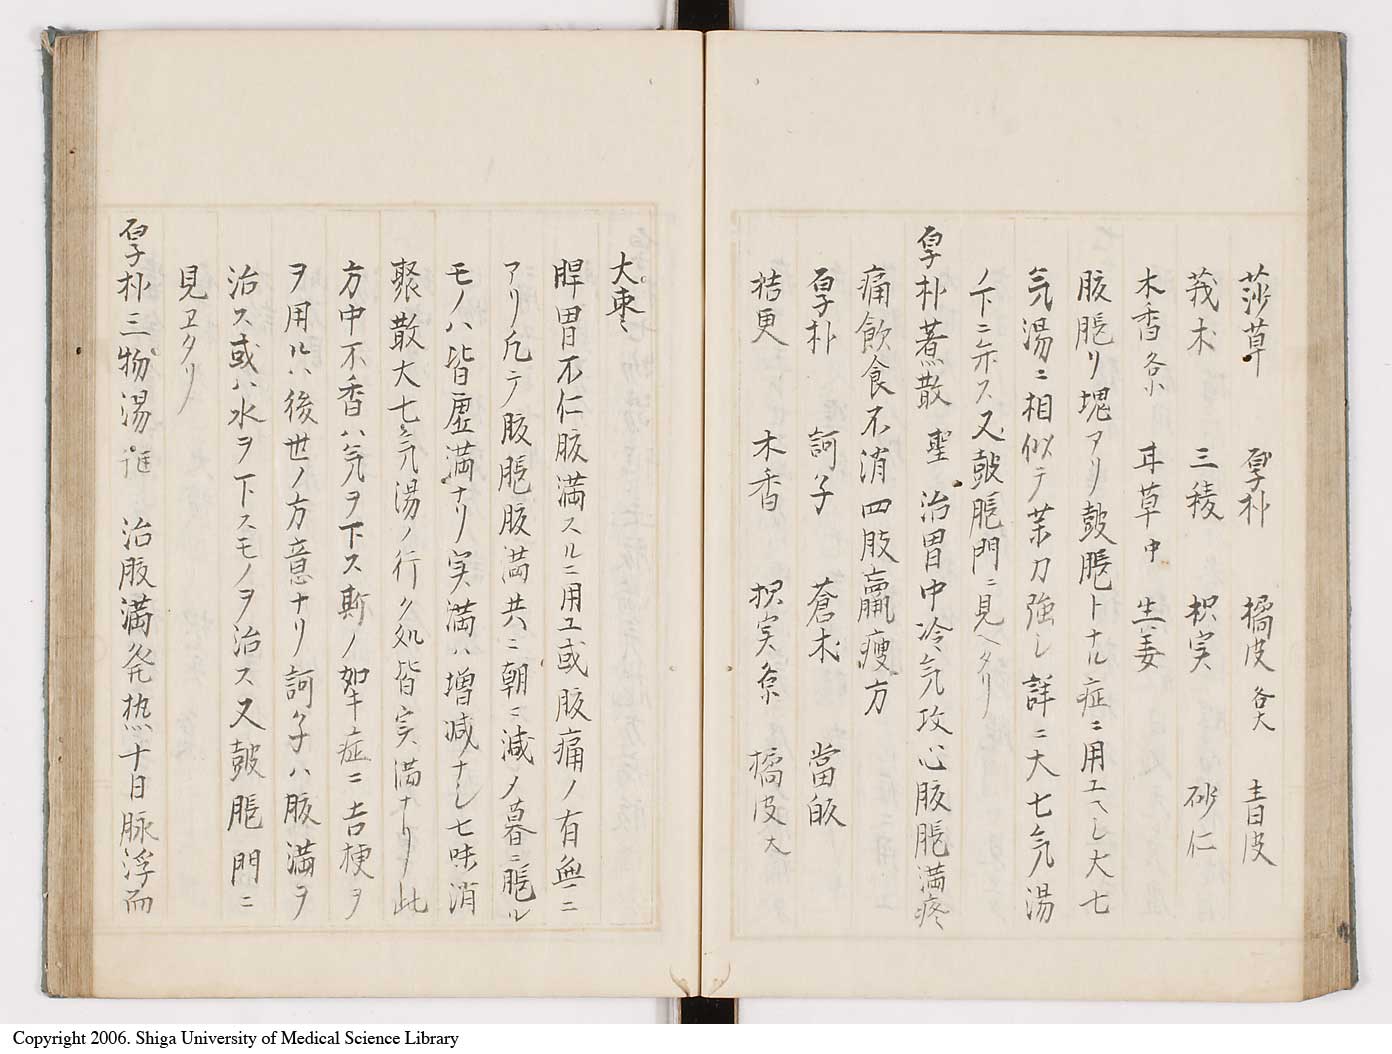 莎草 厚朴 橘皮各大 青皮
莪朮 三稜 枳実 砂仁
木香各小 耳草中 生姜
腹脹リ塊アリ鼓脹トナル症ニ用エヘシ大七
気湯ニ相似テ薬力強シ詳ニ大七気湯
ノ下ニ示ス又鼓脹門ニ見ヘタリ
厚朴煮散 聖 治胃中冷気攻心腹脹満疼
痛飲食不消四肢羸痩方
厚朴 訶子 蒼朮 當皈
桔更 木香 枳実 橘皮大
大棗
脾胃不仁腹満スルニ用ユ或腹痛ノ有無ニ
アリ凡テ腹脹腹満共ニ朝ニ減ノ暮ニ脹ル
モノハ皆虚満ナリ実満ハ増減ナシ七味消
聚散大七気湯ノ行ク処皆実満ナリ此
方中木香ハ気ヲ下ス斯ノ如キ症ニ吉梗ヲ
ヲ用ルハ後世ノ方意ナリ訶子ハ腹満ヲ
治ス或ハ水ヲ下スモノヲ治ス又鼓脹門ニ
見ヱタリ
厚朴三物湯 治腹満発熱十日脉浮而
Copyright 2006. Shiga University of Medical Science Library